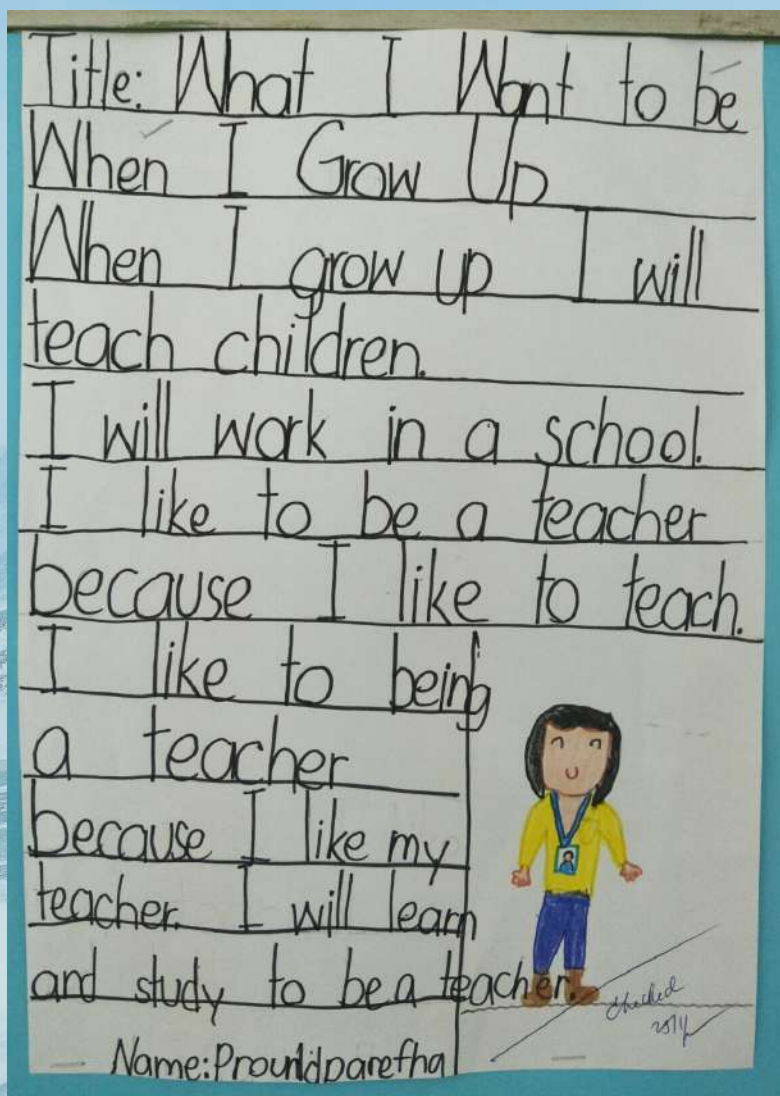 Title: What I Want to be
When I Grow Up
When I grow up I will
teach children.
I will work in a school.
I like to be a teacher
because I like to teach.
I like to being
a teacher
because I like my
teacher. I will learn
and study to be a teacher.
checked
Name: